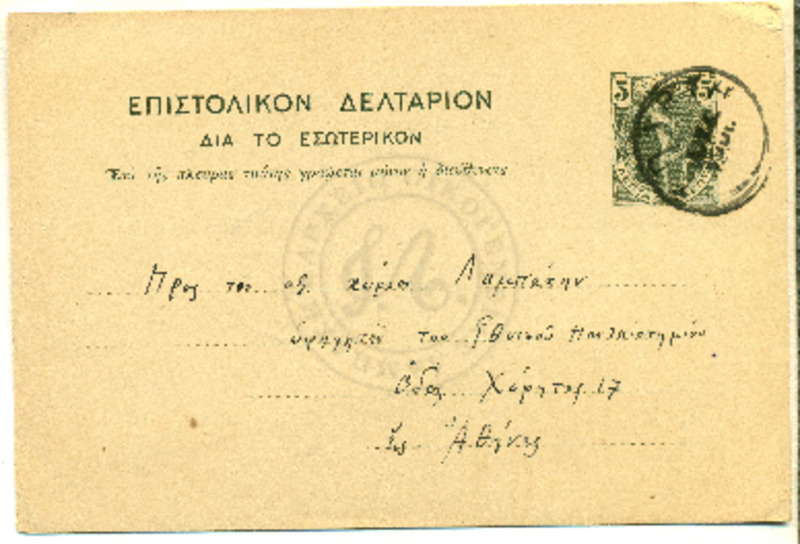 ΕΠΙΣΤΟΛΙΚΟΝ ΔΕΛΤΑΡΙΟΝ
ΔΙΑ ΤΟ ΕΣΩΤΕΡΙΚΟΝ
Ἐπὶ τῆς πλευρᾶς ταύτης γράφεται μόνον ἡ διεύθυνσις
5
Προς τον αξ. κύριον Λαμπάκην
ὑφηγητὴν του Ἐθνικοῦ Πανεπιστημίου
Ὁδος Χάρητος 17
Ἀθήνας